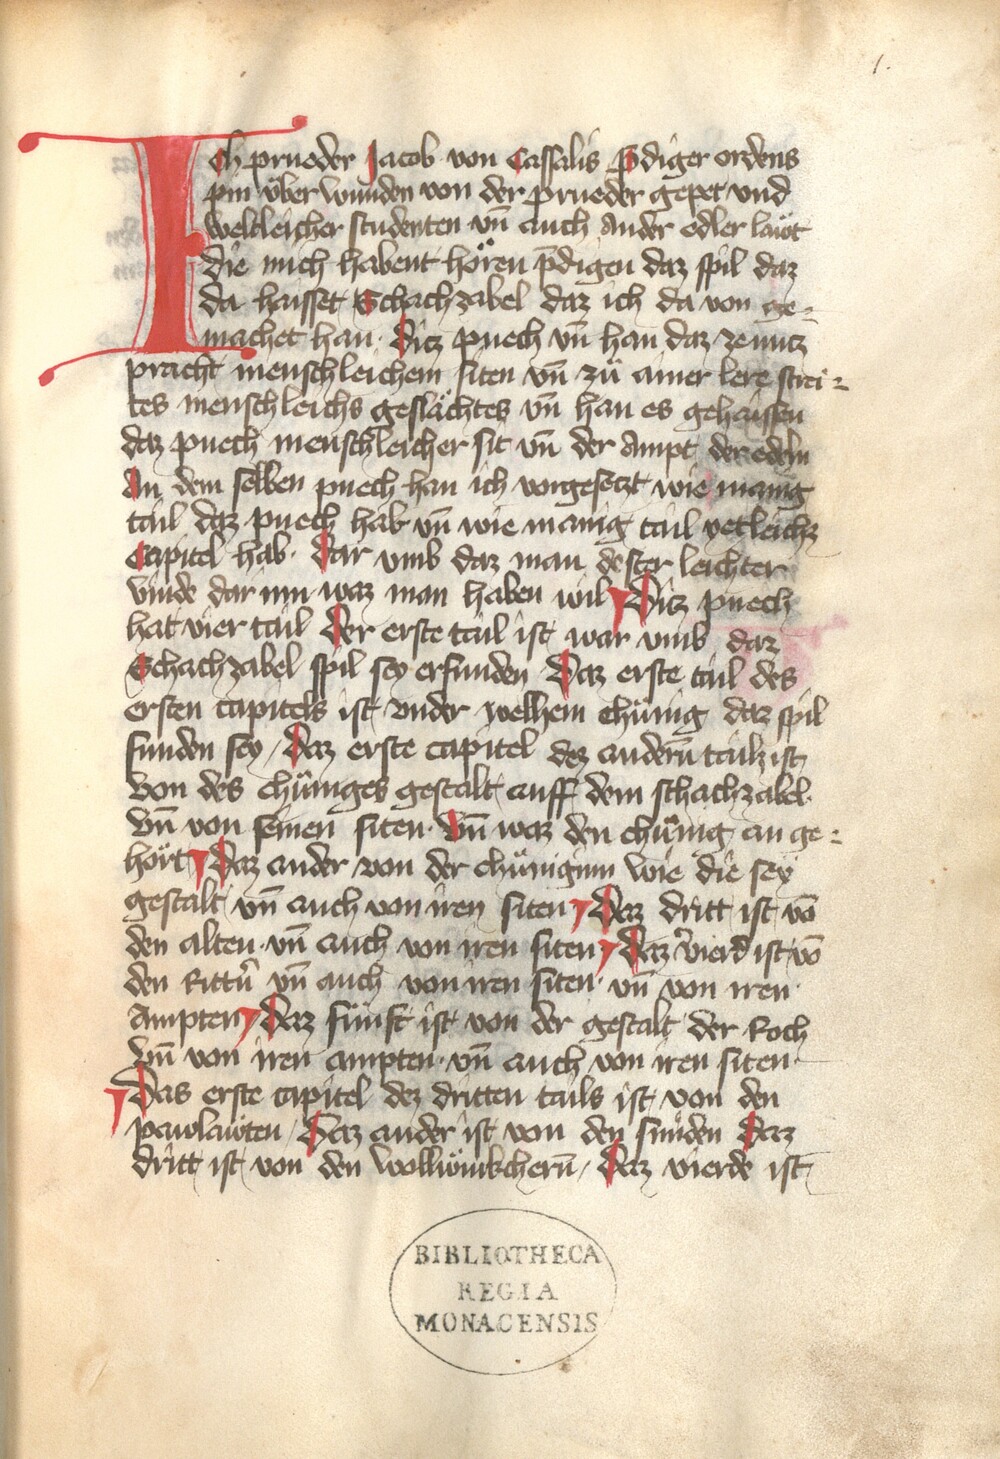 1.
Ich prueder Jacob von Cassalis p̄diger ordens
pin über wunden von der prueder gepet vnd
weltleicher studenten vn̄ auch ander edler läwt
die mich habent hören p̄digen daz spil daz
da haisset Schachzabel daz ich da von ge-
machet han. ditz puech vn̄ han daz ze nutz
pracht menschleichem siten vn̄ zů ainer lere strei-
tes menschleichs geslächtes vn̄ han es gehaissen
daz puech menschleicher sit vn̄ der Ampt der edeln
An dem selben puech han ich vorgesetzt wie manig
tail daz puech hab vn̄ wie manig tail yetleichz
Capitel hab. Dar vmb daz man dester leichter
vinde dar inn waz man haben wil Ditz puech
hat vier tail Der erste tail ist war vmb daz
Schachzabel spil sey erfunden Daz erste tail des
ersten capitels ist vnder welhem chünig daz spil
funden sey, Daz erste capitel dez andern̄ tailz ist
von des chüniges gestalt auff dem schachzabel.
vn̄ von seinen siten. Vn̄ waz den chünig an ge-
hört Daz ander von der chüniginn wie die sey
gestalt vn̄ auch von iren siten Daz dritt ist vō
den alten vn̄ auch von iren siten Daz vierd ist vō
den Rittn̄ vn̄ auch von iren siten. vn̄ von iren.
Ampten Daz fünft ist von der gestalt der Roch
Vn̄ von iren ampten. vn̄ auch von iren siten.
Das erste capitel dez dritten tails ist von den
pawläwten, Daz ander ist von den smiden Daz
dritt ist von den wollwürkchern̄, Daz vierde ist
BIBLIOTHECA
REGIA
MONACENSIS